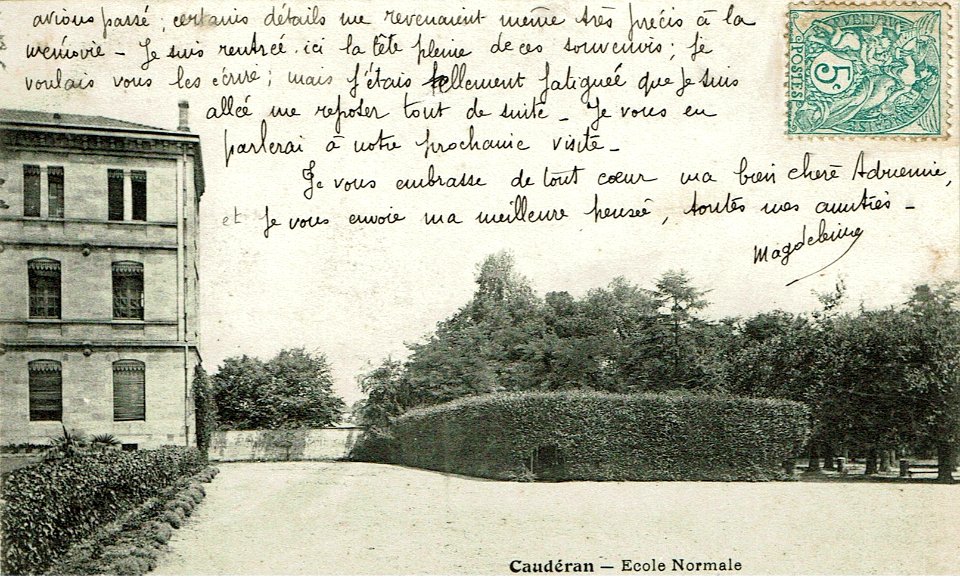 avions passé ; certains détails me revenaient même très précis à la
mémoire – Je suis rentrée ici la tête pleine de ces souvenirs ; je
voulais vous les écrire ; mais j'étais tellement fatiguée que je suis
allée me reposer tout de suite – Je vous en
parlerai à notre prochaine visite –
Je vous embrasse de tout cœur ma bien chère Adrienne,
et je vous envoie ma meilleure pensée, toutes mes amitiés –
Magdeleine
POSTES
5c
Caudéran — Ecole Normale